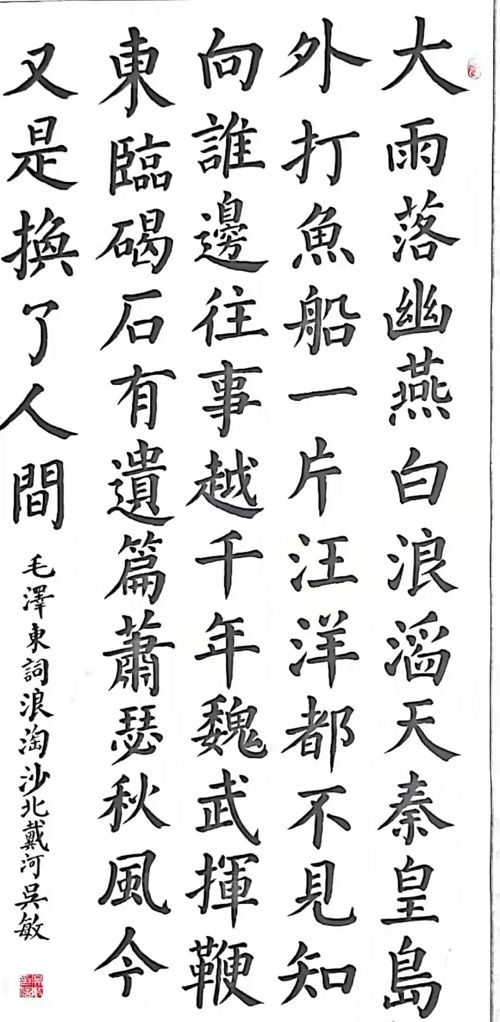 大雨落幽燕白浪滔天秦皇島
外打魚船一片汪洋都不見知
向誰邊往事越千年魏武揮鞭
東臨碣石有遺篇蕭瑟秋風今
又是換了人間
毛澤東詞浪淘沙北戴河吳敏